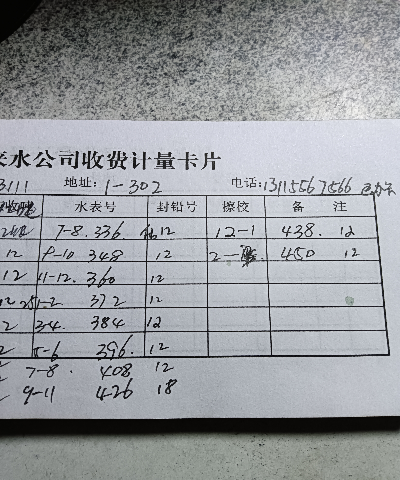 来水公司收费计量卡片
3111 地址: 1-302 电话: 13115567566
水表号 封铅号 擦校 备 注
7-8. 336 12 12-1 438. 12
12 9-10 348 12 2- 450 12
12 11-12. 360 12
12 25 1-2 372 12
2 3-4. 384 12
2 5-6 396. 12
7-8. 408 12
9-11 426 18